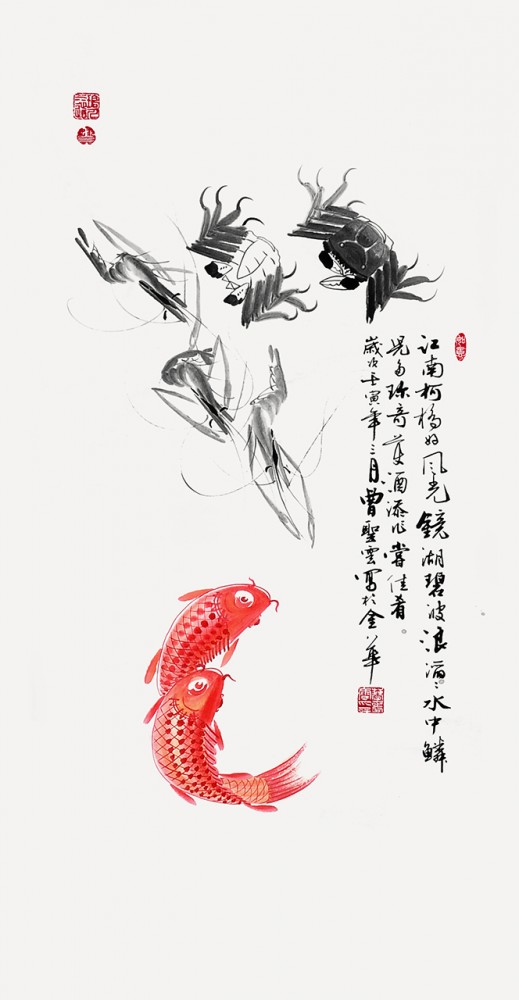 江南柯桥好风光鏡湖碧波浪滔滔水中鱗
児多珍奇黄酒添作嘗佳肴
歲次壬寅年三月曹聖雲寫於金華